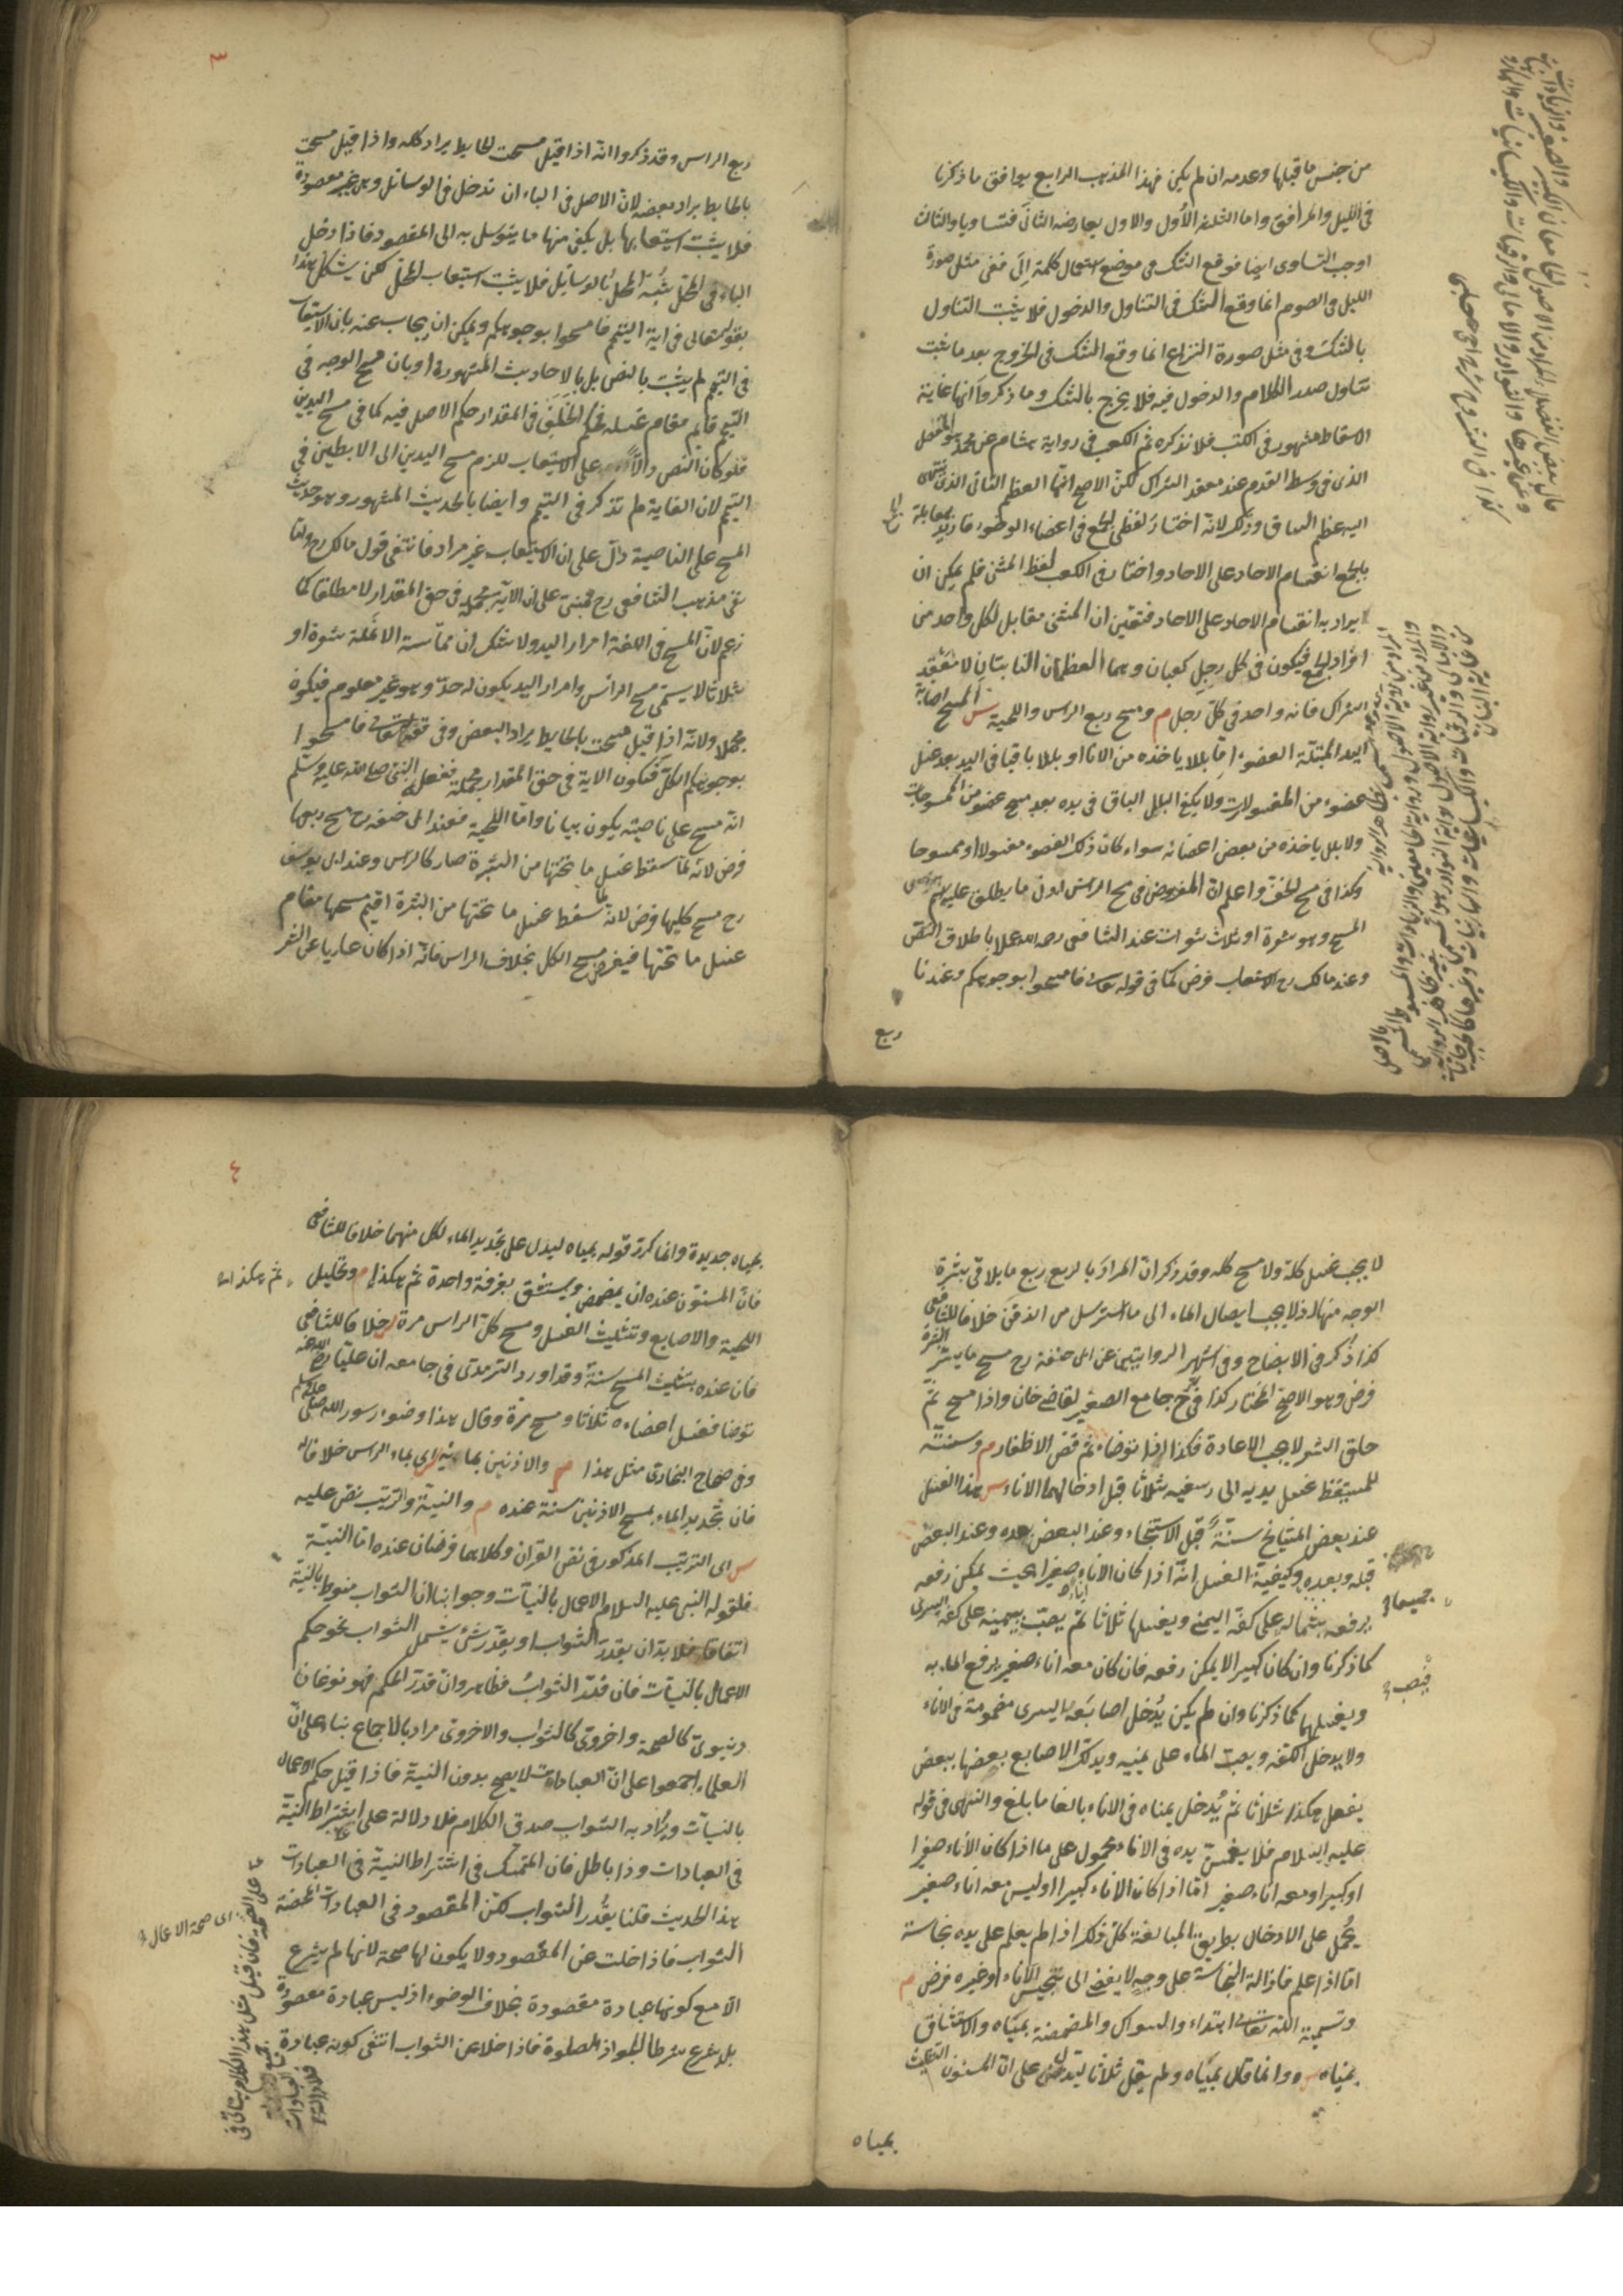 من جنس ما قبلها وعدمه ان لم يكن فهذا المذهب الرابع يوافق ما ذكرنا
في الليل والمرافق واما الثلثة الأول والاول يعارضه الثاني فتساويا والثالث
اوجب التساوي ايضا فوقع الشك في موضع استعمال كلمة إلى ففي مثل صورة
الليل في الصوم انما وقع الشك في التناول والدخول فلا يثبت التناول
بالشك وفي مثل صورة النزاع انما وقع الشك في الخروج بعد ما ثبت
تناول صدر الكلام والدخول فيه فلا يخرج بالشك وما ذكروا انها غاية
الاسقاط مشهور في الكتب فلا نذكره ثم الكعب في رواية هشام عن محمد هو المفصل
الذي في وسط القدم عند معقد الشراك لكن الاصح انها العظم الناتي الذي ينتهي
اليه عظم الساق وذلك لانه اختار لفظ الجمع في اعضاء الوضوء فاريد بمقابلة
بالجمع انقسام الاحاد على الاحاد واختار في الكعب لفظ المثنى فلم يمكن ان
يراد به انقسام الاحاد على الاحاد فتعين ان المثنى مقابل لكل واحد من
افراد الجمع فيكون في كل رجل كعبان وهما العظمان الناتيان لا معقد
الشراك فانه واحد في كل رجل م ومسح ربع الراس واللحية س المسح اصابة
اليد المبتلة العضو اما بللا ياخذه من الاناء او بللا باقيا في اليد بعد غسل
عضو من المغسولات ولا يكفي البلل الباقي في يده بعد مسح عضو من الممسوحات
ولا بلل ياخذه من بعض اعضائه سواء كان ذلك العضو مغسولا او ممسوحا
وكذا في مسح الخف واعلم ان المفروض في مسح الراس ادنى ما يطلق عليه اسم
المسح وهو شعرة او ثلث شعرات عند الشافعي رحمه الله عملا باطلاق النص
وعند مالك رح الاستيعاب فرض كما في قوله تعالى فامسحوا بوجوهكم وعندنا
ربع
قال بعض الفضلاء المراد من الاصول الجامعان الكبير والصغير والزيادات
وعن غيرها والنوادر والامالي والرقيات والكيسانيات والهارونيات
كذا في الشروح
٣
ربع الراس وقد ذكروا انه اذا قيل مسحت الحايط يراد كله واذا قيل مسحت
بالحايط يراد بعضه لان الاصل في الباء ان تدخل في الوسائل وهي غير مقصودة
فلا يثبت استيعابها بل يكفي منها ما يتوسل به الى المقصود فاذا دخل
الباء في المحل شبه المحل بالوسايل فلا يثبت استيعاب المحل لكن يشكل هذا
بقوله تعالى في اية التيمم فامسحوا بوجوهكم ويمكن ان يجاب عنه بان الاستيعاب
في التيمم لم يثبت بالنص بل بالاحاديث المشهورة او بان مسح الوجه في
التيمم قايم مقام غسله فحكم الخلف في المقدار حكم الاصل فيه كما في مسح اليدين
فلو كان النص دالا على الاستيعاب للزم مسح اليدين الى الابطين في
التيمم لان الغاية لم تذكر في التيمم وايضا بالحديث المشهور وهو حديث
المسح على الناصية دال على ان الاستيعاب غير مراد فانتفى قول مالك رح واما
نفي مذهب الشافعي رح فمبني على ان الاية مجملة في حق المقدار لا مطلقا كما
زعم لان المسح في اللغة امرار اليد ولا شك ان مماسة الانملة شعرة او
ثلاثا لا يسمى مسح الراس وامرار اليد يكون له حد وهو غير معلوم فيكون
مجملا ولانه اذا قيل مسحت بالحايط يراد البعض وفي قوله تعالى فامسحوا
بوجوهكم الكل فتكون الاية في حق المقدار مجملة ففعل النبي صلى الله عليه وسلم
انه مسح على ناصيته يكون بيانا واما اللحية فعند ابي حنيفة رح مسح ربعها
فرض لانه لما سقط غسل ما تحتها من البشرة صار كالراس وعند ابي يوسف
رح مسح كلها فرض لانه لما سقط غسل ما تحتها من البشرة اقيم مسحها مقام
غسل ما تحتها فيفرض مسح الكل بخلاف الراس فانه اذا كان عاريا عن الشعر
لا يجب غسل كله ولا مسح كله وقد ذكر ان المراد بالربع ربع ما يلاقي بشرة
الوجه منها اذ لا يجب ايصال الماء الى ما استرسل من الذقن خلافا للشافعي
كذا ذكر في الايضاح وفي اشهر الروايتين عن ابي حنيفة رح مسح ما يستر البشرة
فرض وهو الاصح المختار كذا في شرح جامع الصغير لقاضي خان واذا مسح ثم
حلق الشعر لا يجب الاعادة فكذا اذا توضاء ثم قص الاظفار م وسنته
للمستيقظ غسل يديه الى رسغيه ثلاثا قبل ادخالهما الاناء س هذا الغسل
عند بعض المشايخ سنة قبل الاستنجاء وعند البعض بعده وعند البعض
قبله وبعده وكيفية الغسل انه اذا كان الاناء صغيرا بحيث يمكن رفعه
يرفعه بشماله على كفه اليمنى ويغسلها ثلاثا ثم يصب بيمينه على كفه اليسرى
كما ذكرنا وان كان كبيرا لا يمكن رفعه فان كان معه اناء صغير يرفع الماء به
ويغسلهما كما ذكرنا وان لم يكن يدخل اصابعه اليسرى مضمومة في الاناء
ولا يدخل الكف ويصب الماء على يمينه ويدلك الاصابع بعضها ببعض
يفعل هكذا ثلاثا ثم يدخل يمناه في الاناء بالغا ما بلغ والنهي في قوله
عليه السلام فلا يغمسن يده في الاناء محمول على ما اذا كان الاناء صغيرا
او كبيرا ومعه اناء صغير اما اذا كان الاناء كبيرا وليس معه اناء صغير
يحمل على الادخال بطريق المبالغة كل ذلك اذا لم يعلم على يده نجاسة
اما اذا علم فازالة النجاسة على وجه لا يفضي الى تنجيس الاناء او غيره فرض م
وتسمية الله تعالى ابتداء والسواك والمضمضة بمياه والاستنشاق
بمياه س وانما قال بمياه ولم يقل ثلاثا ليدل على ان المسنون التثليث
بمياه
جميعا
فيصب
٤
بمياه جديدة وانما كرر قوله بمياه ليدل على تجديد الماء لكل منهما خلافا للشافعي
فان المسنون عنده ان يمضمض ويستنشق بغرفة واحدة ثم هكذا م وتخليل
ثم هكذا
اللحية والاصابع وتثليث الغسل ومسح كل الراس مرة س خلافا للشافعي
فان عنده تثليث المسح سنة وقد اورد الترمذي في جامعه ان عليا رضي الله عنه
توضا فغسل اعضاءه ثلاثا ومسح مرة وقال هذا وضوء رسول الله صلى
وفي صحاح البخاري مثل هذا م والاذنين بمائه س اي بماء الراس خلافا له
فان تجديد الماء لمسح الاذنين سنة عنده م والنية والترتيب نص عليه
س اي الترتيب المذكور في نص القران وكلاهما فرضان عنده اما النية
فلقوله النبي عليه السلام الاعمال بالنيات وجوابنا ان الثواب منوط بالنية
اتفاقا فلا بد ان يقدر الثواب او يقدر شئ يشمل الثواب نحو حكم
الاعمال بالنيات فان قدر الثواب فظاهر وان قدر الحكم فهو نوعان
دنيوي كالصحة واخروي كالثواب والاخروي مراد بالاجماع بناء على ان
العلماء اجمعوا على ان العبادات لا يصح بدون النية فاذا قيل حكم الاعمال
بالنيات ويراد به الثواب صدق الكلام فلا دلالة على اشتراط النية
في العبادات وذا باطل فان المتمسك في اشتراط النية في العبادات
هذا الحديث قلنا يقدر الثواب لكن المقصود في العبادات المحضة
الثواب فاذا خلت عن المقصود ولا يكون لها صحة لانها لم يشرع
الا مع كونها عبادة مقصودة بخلاف الوضوء اذ ليس عبادة مقصودة
بل شرع شرطا لجواز الصلوة فاذا خلا عن الثواب انتفى كونه عبادة
اي صحة الاعمال
على الصحة فان قيل مثل هذا الكلام يتاتى في
جميع العبادات